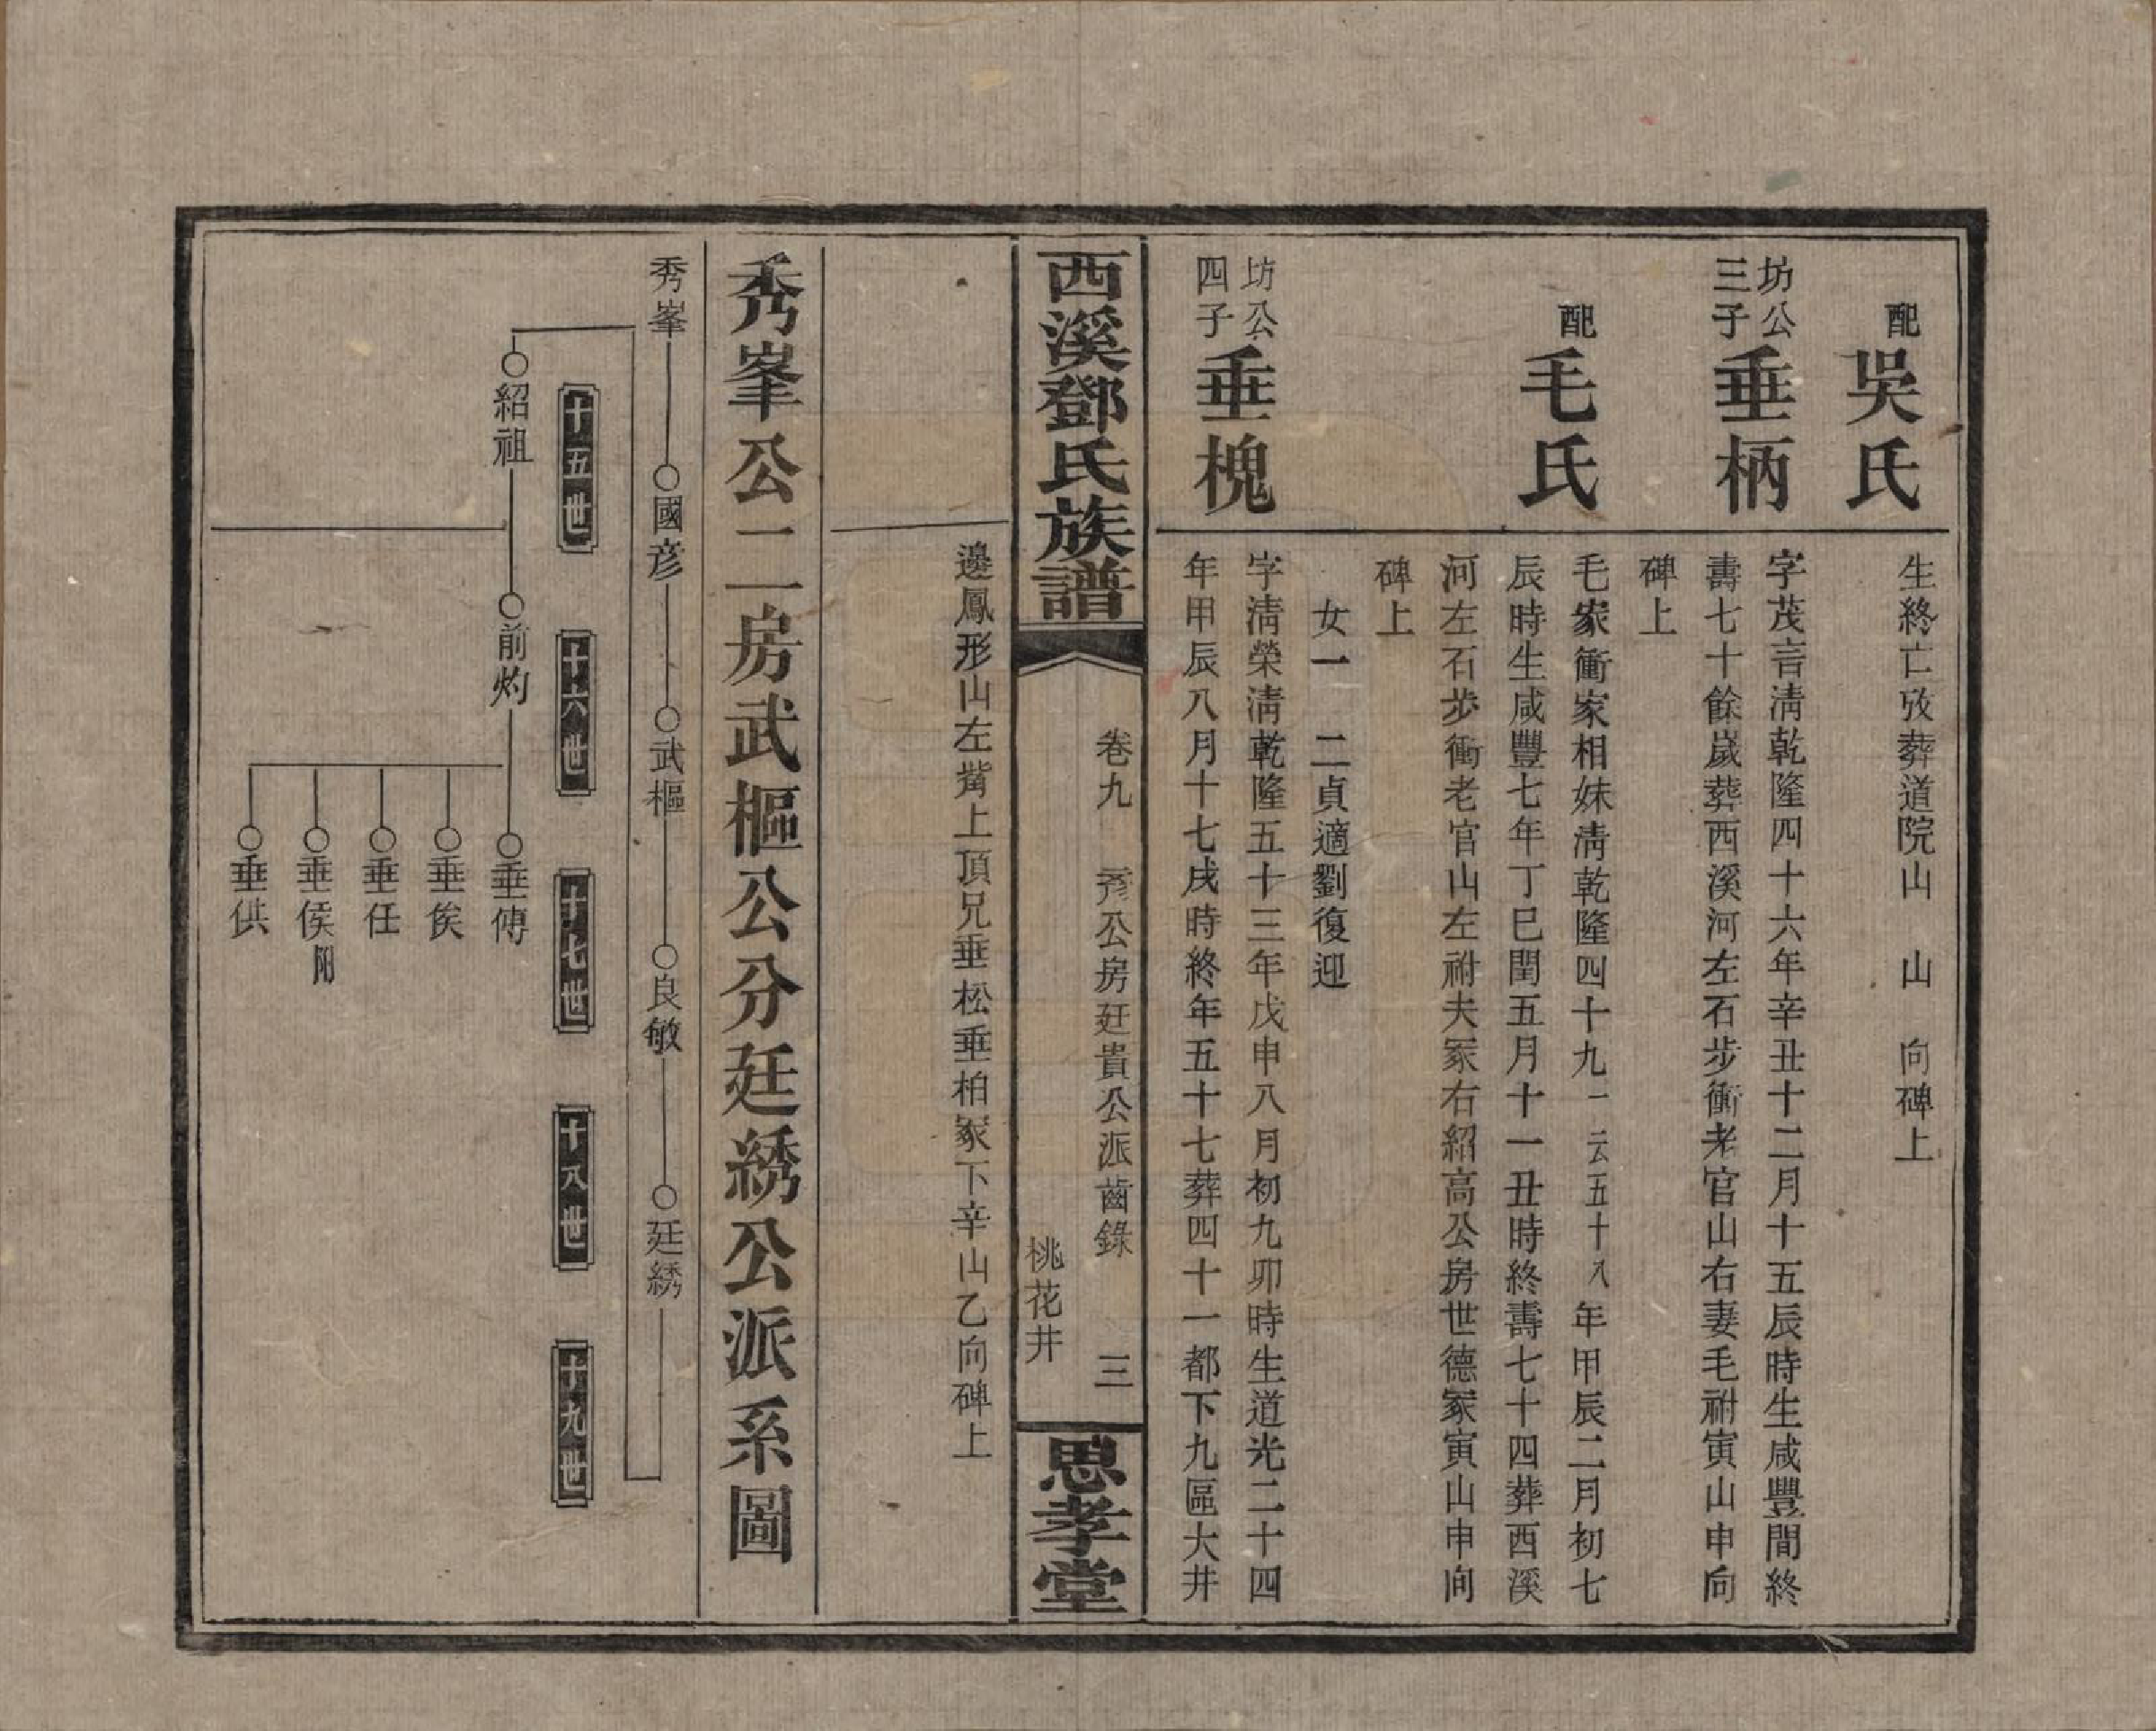 配
吳氏
生終亡攷葬道院山　山　向碑上
坊公
三子
垂柄
字茂言淸乾隆四十六年辛丑十二月十五辰時生咸豐間終
壽七十餘歲葬西溪河左石步衝老官山右妻毛祔寅山申向
碑上
配
毛氏
毛家衝家相妹淸乾隆四十九一云五十八年甲辰二月初七
辰時生咸豐七年丁巳閏五月十一丑時終壽七十四葬西溪
河左石步衝老官山左祔夫冢右紹高公房世德冢寅山申向
碑上
女一　二貞適劉復迎
坊公
四子
垂槐
字淸榮淸乾隆五十三年戊申八月初九卯時生道光二十四
年甲辰八月十七戌時終年五十七葬四十一都下九區大井
西溪鄧氏族譜
卷九　彥公房廷貴公派齒錄　三
桃花井
思孝堂
邊鳳形山左觜上頂兄垂松垂柏冢下辛山乙向碑上
秀峯公二房武樞公分廷綉公派系圖
秀峯
國彥
武樞
良敏
廷綉
十五世
十六世
十七世
十八世
十九世
紹祖
前灼
垂傳
垂俟
垂任
垂侯
垂供